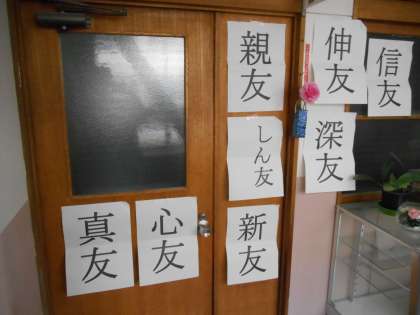 親友
伸友
信友
しん友
深友
真友
心友
新友